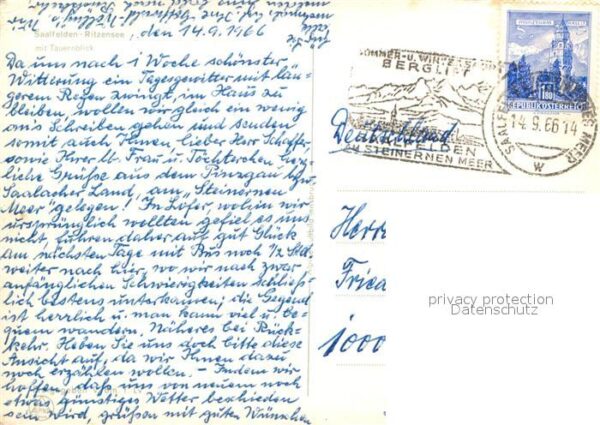 Saalfelden - Ritzensee, den 14.9.1966
mit Tauernblick
Da uns nach 1 Woche schönster
Witterung ein Tagesgewitter mit län-
gerem Regen zwingt, im Haus zu
bleiben, wollen wir gleich ein wenig
ans Schreiben gehen und senden
somit auch Ihnen, lieber Herr Schaffer
sowie Ihrer lb. Frau u. Töchterchen herz-
liche Grüße aus dem Pinzgau
Saalacher Land, am "Steinernen
Meer" gelegen! In Lofer, wohin wir
ursprünglich wollten gefiel es uns
nicht, fuhren daher auf gut Glück
am nächsten Tage mit Bus noch 1/2 Std.
weiter nach hier, wo wir nach zwar
anfänglichen Schwierigkeiten schließ-
lich bestens unterkamen; die Gegend
ist herrlich u. man kann viel u. be-
quem wandern. Näheres bei Rück-
kehr. Heben Sie uns doch bitte diese
Ansicht auf, da wir Ihnen dazu
noch erzählen wollen. - Indem wir
hoffen, daß uns von neuem noch
etwas günstiges Wetter beschieden
sein wird, grüßen mit guten Wünschen
SOMMER- U. WINTER
BERGLIFT
SAALFELDEN
AM STEINERNEN MEER
14.9.66 14
W
S 1.80
REPUBLIK ÖSTERREICH
Deutschland
Herrn
Frie
1000
privacy protection
Datenschutz